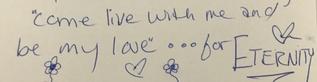 "come live with me and
be my love"...for ETERNITY